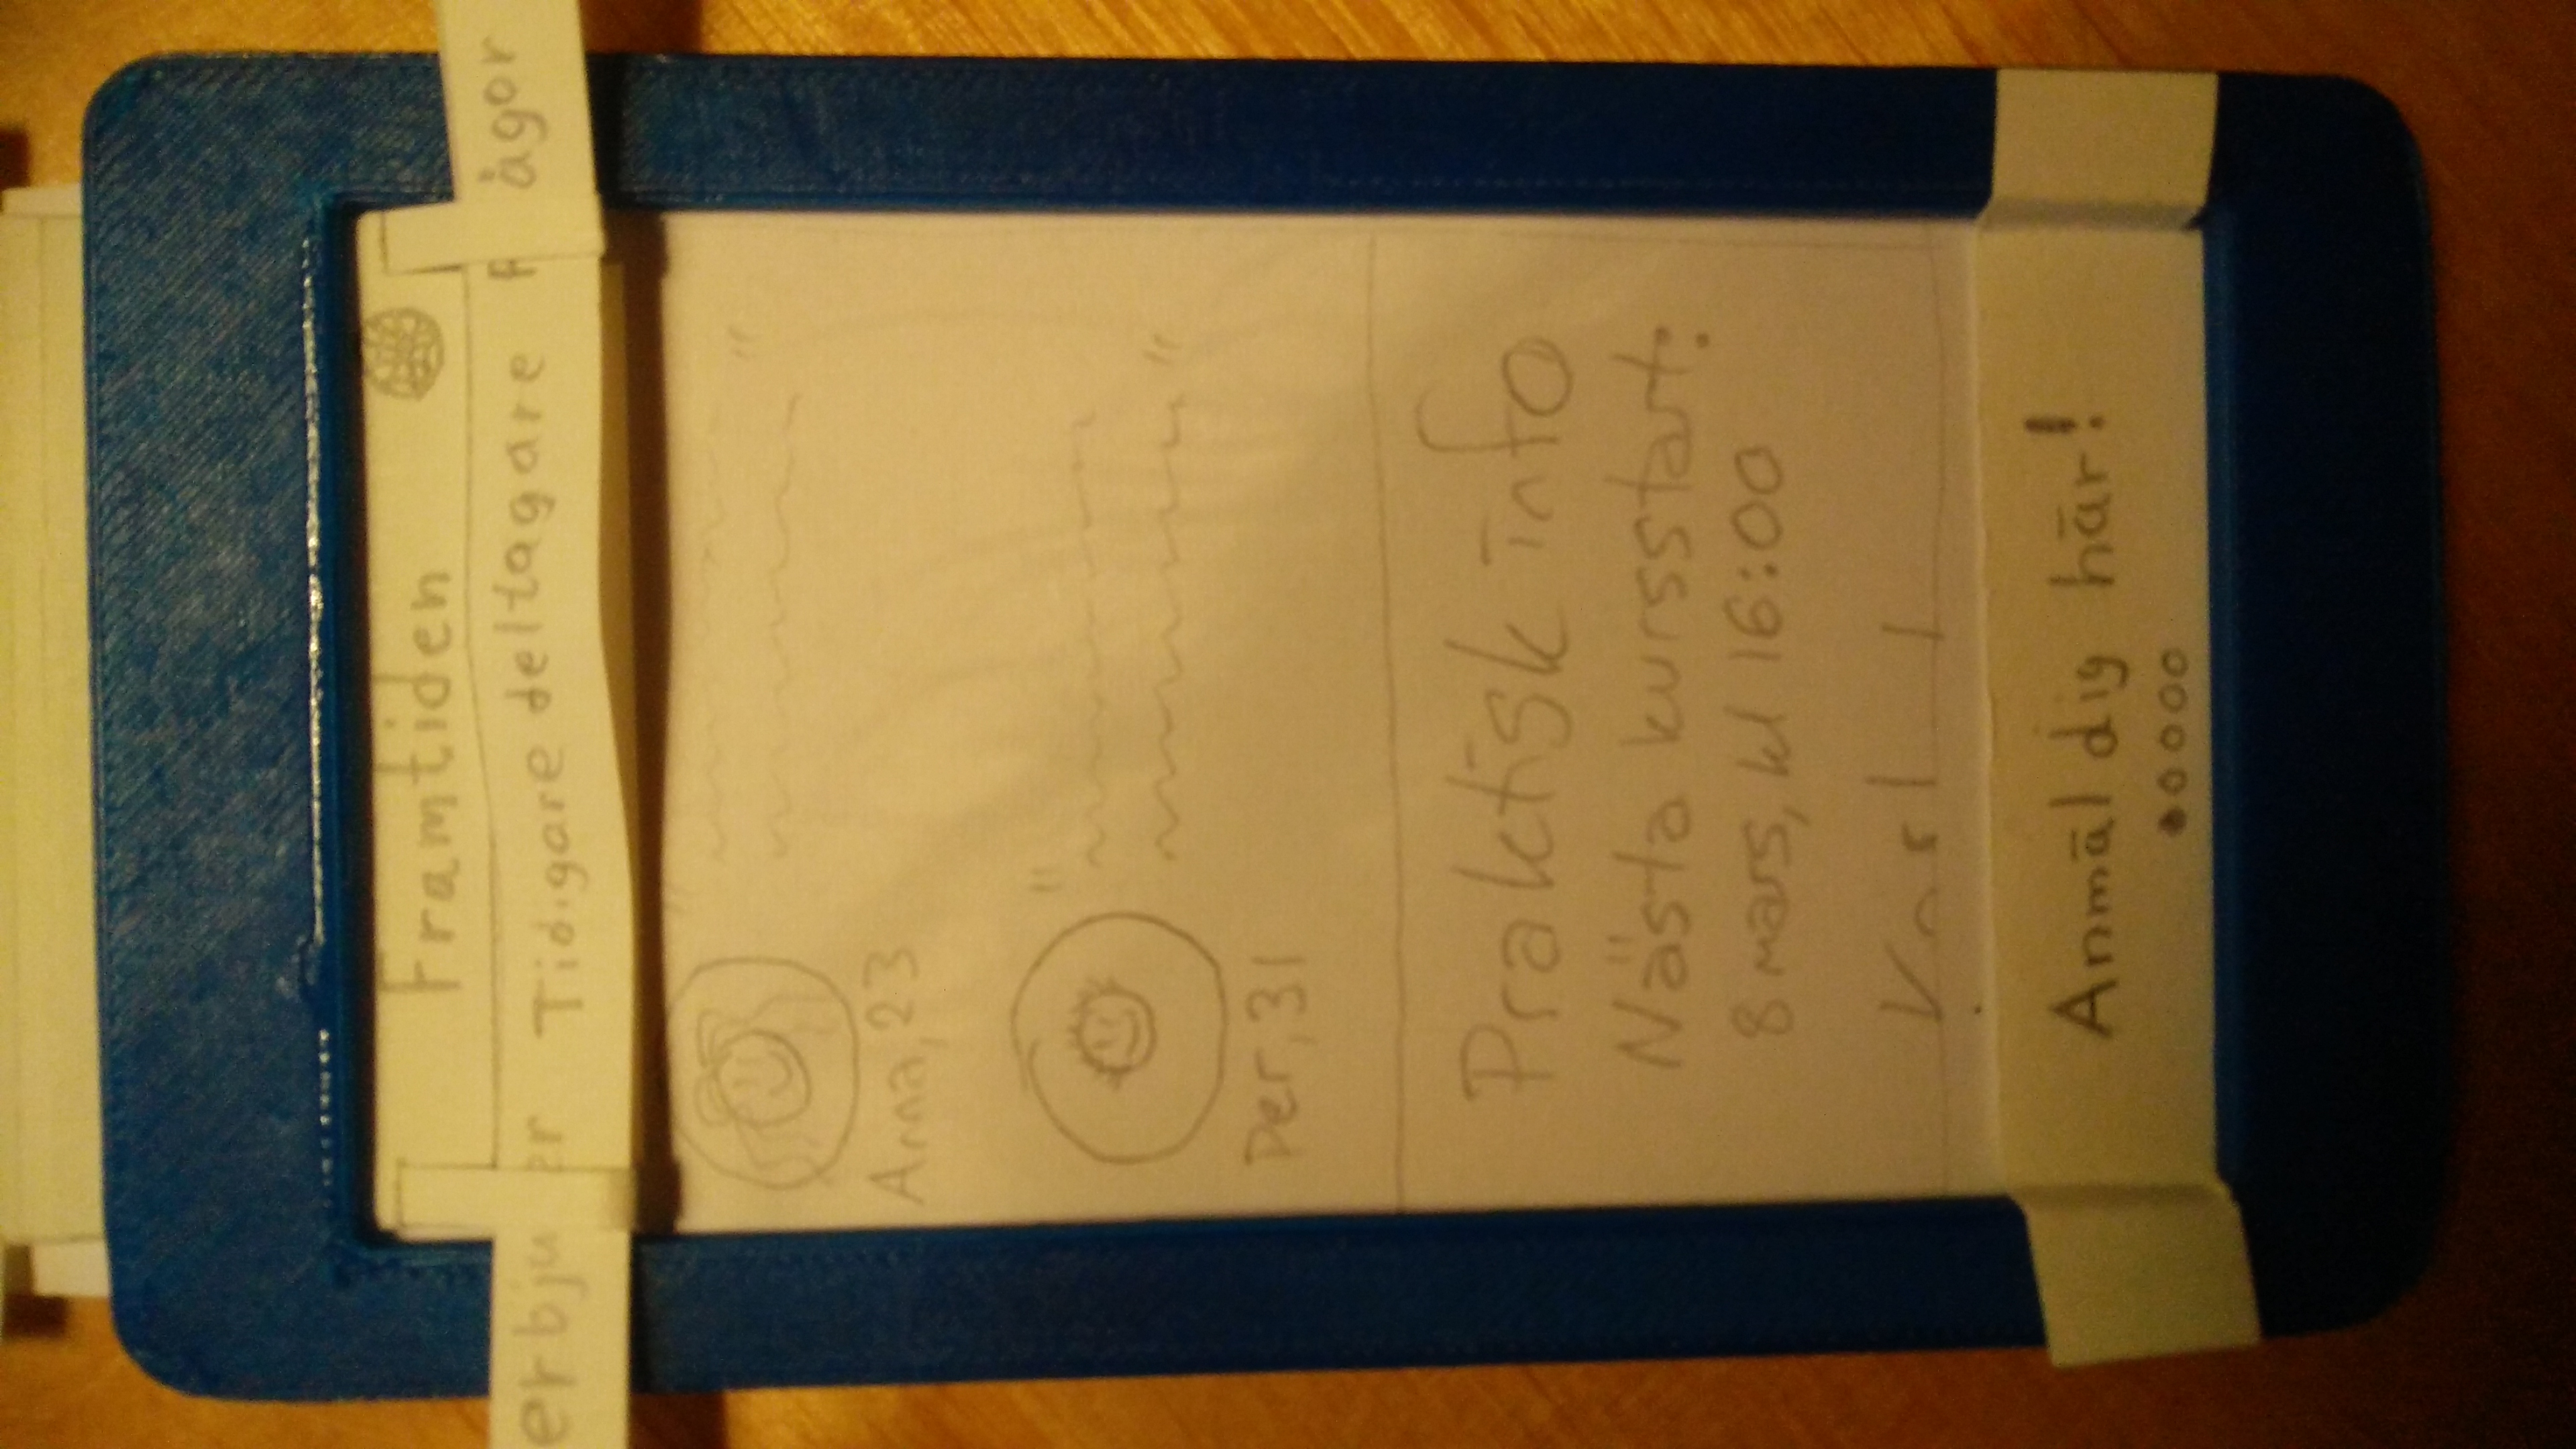 Framtiden
erbju er Tidigare deltagare F ågor
Anna, 23
Per, 31
Praktisk info
Nästa kursstart:
8 mars, kl 16:00
Anmäl dig här!